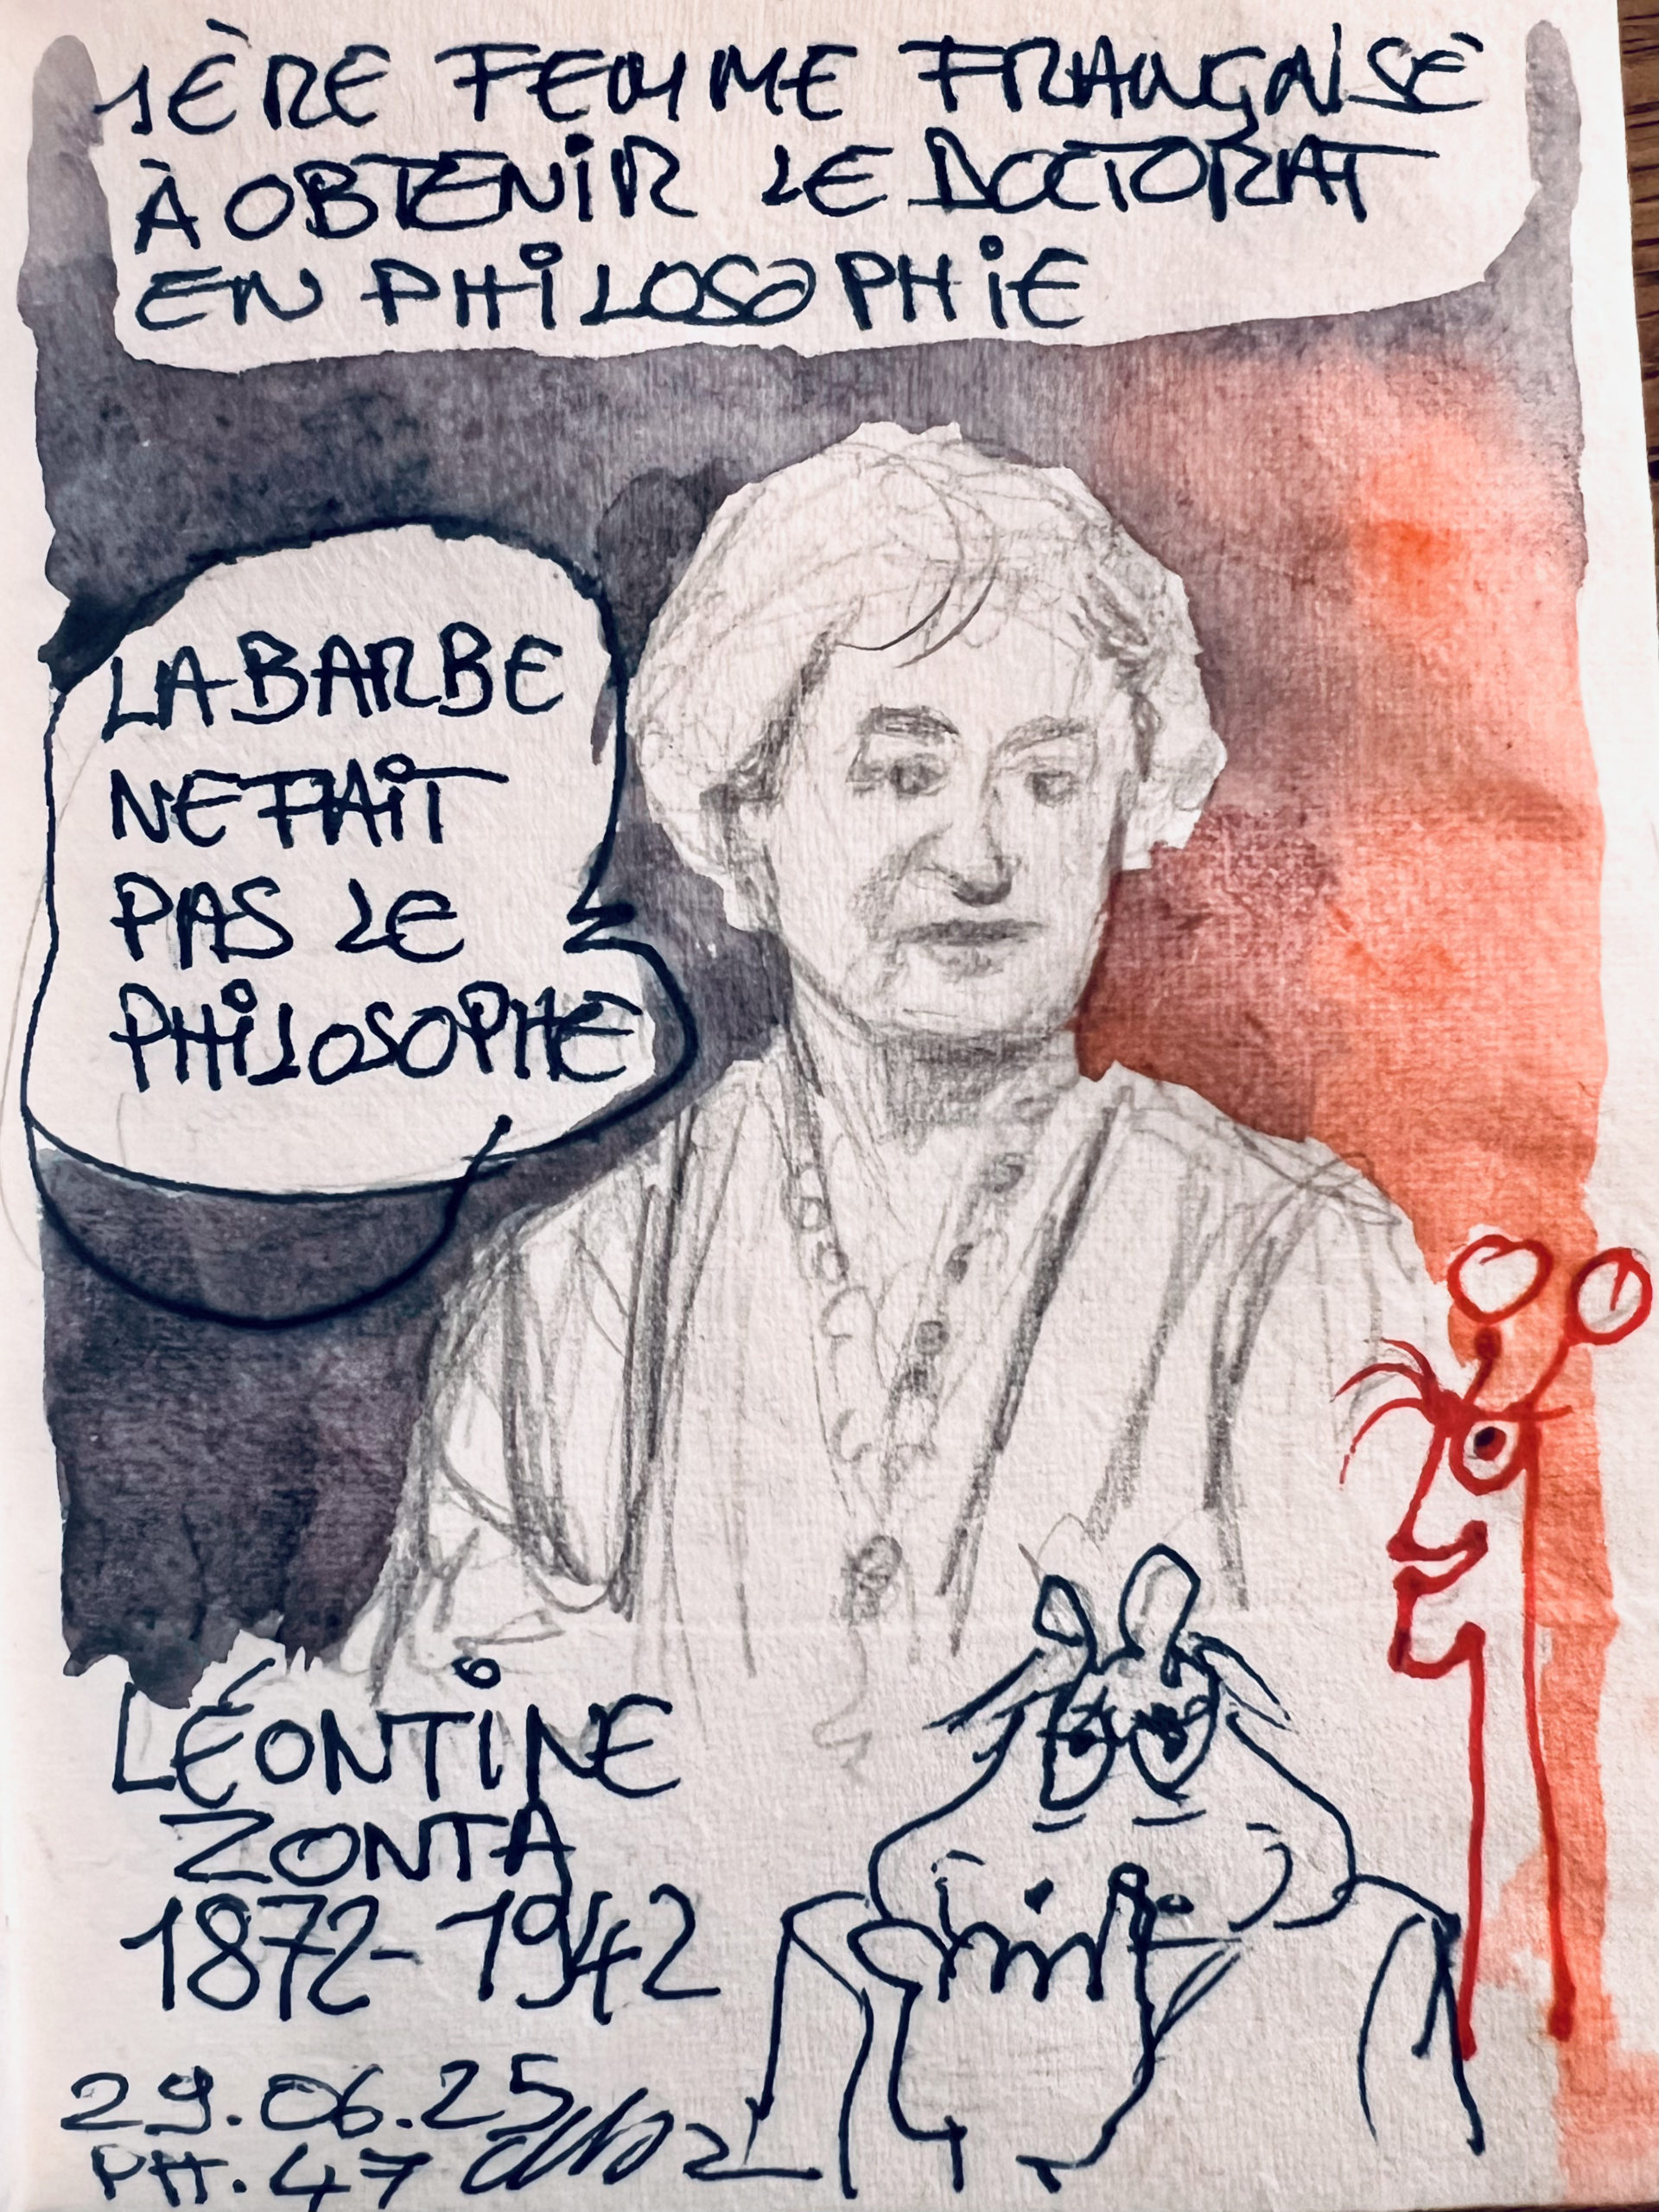 1ÈRE FEMME FRANÇAISE
À OBTENIR LE DOCTORAT
EN PHILOSOPHIE
LA BARBE
NE FAIT
PAS LE
PHILOSOPHE
LÉONTINE
ZONTA
1872-1942
29.06.25
PH.47